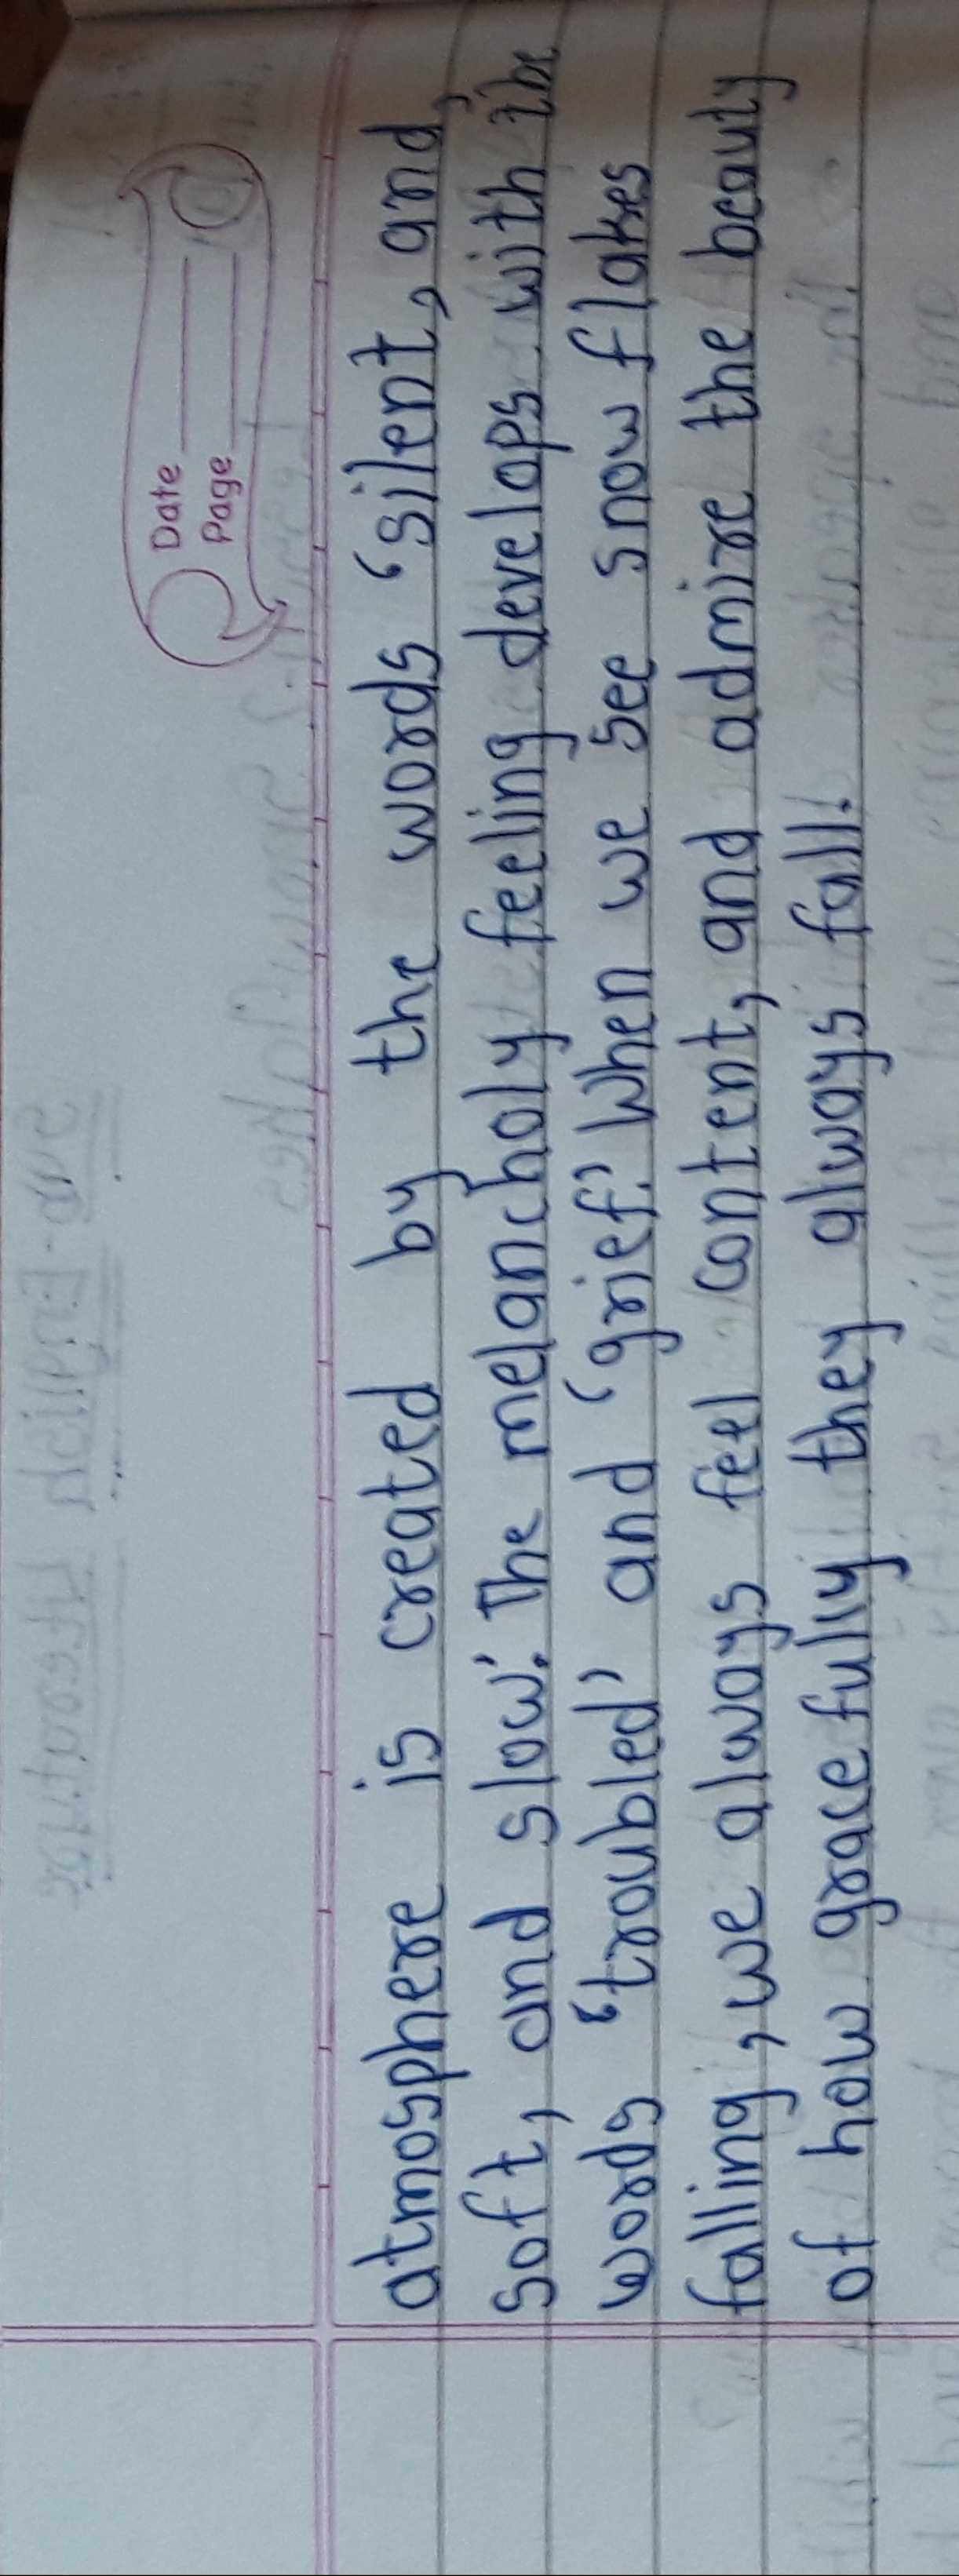 Date
Page
atmosphere is created by the words 'silent, and,
soft, and slow'. The melancholy feeling develops with the
words 'troubled' and 'grief'. When we see snow flakes
falling, we always feel content, and admire the beauty
of how gracefully they always fall.